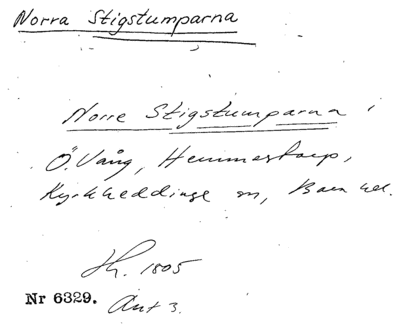 Norra Stigstumparna
Norre Stigstumparna,
Ö. Vång, Hemmestorp,
Kyrkheddinge sn, Bara hd.
Th. 1805
Nr 6329. Akt 3.